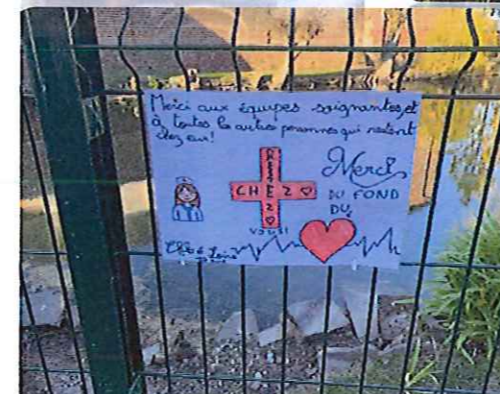 Merci aux équipes soignantes, et
à toutes les autres personnes qui restent
chez eux!
RESTEZ
CHEZ
VOUS!
Merci
DU FOND
DU